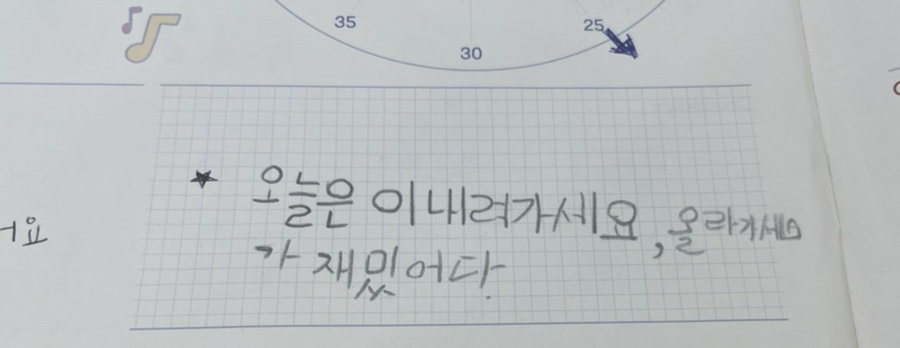 35
25
30
★ 오늘은 이내려가세요, 올라가세요
가 재밌어다.
요